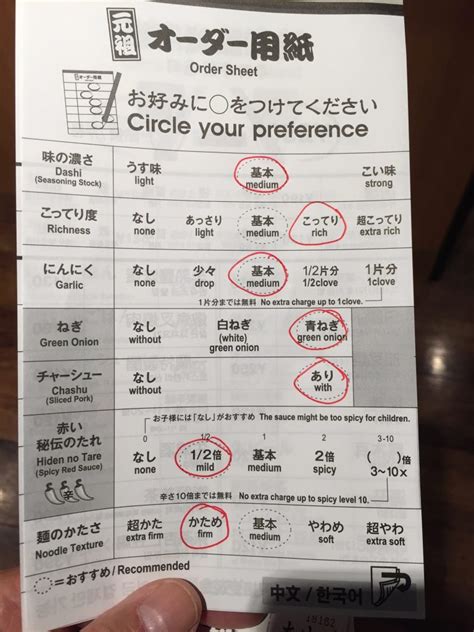 元祖 オーダー用紙
Order Sheet
オーダー用紙
お好みに○をつけてください
Circle your preference
味の濃さ うす味 基本 こい味
Dashi light medium strong
(Seasoning Stock)
こってり度 なし あっさり 基本 こってり 超こってり
Richness none light medium rich extra rich
にんにく なし 少々 基本 1/2片分 1片分
Garlic none drop medium 1/2clove 1clove
1片分までは無料 No extra charge up to 1clove.
ねぎ なし 白ねぎ 青ねぎ
Green Onion without (white) green onion
green onion
チャーシュー なし あり
Chashu without with
(Sliced Pork)
お子様には「なし」がおすすめ The sauce might be too spicy for children.
赤い 0 1/2 1 2 3-10
秘伝のたれ なし 1/2倍 基本 2倍 ( )倍
Hiden no Tare none mild medium spicy 3~10x
(Spicy Red Sauce)
辛
辛さ10倍までは無料 No extra charge up to spicy level 10.
麺のかたさ 超かた かため 基本 やわめ 超やわ
Noodle Texture extra firm firm medium soft extra soft
=おすすめ / Recommended
中文 / 한국어